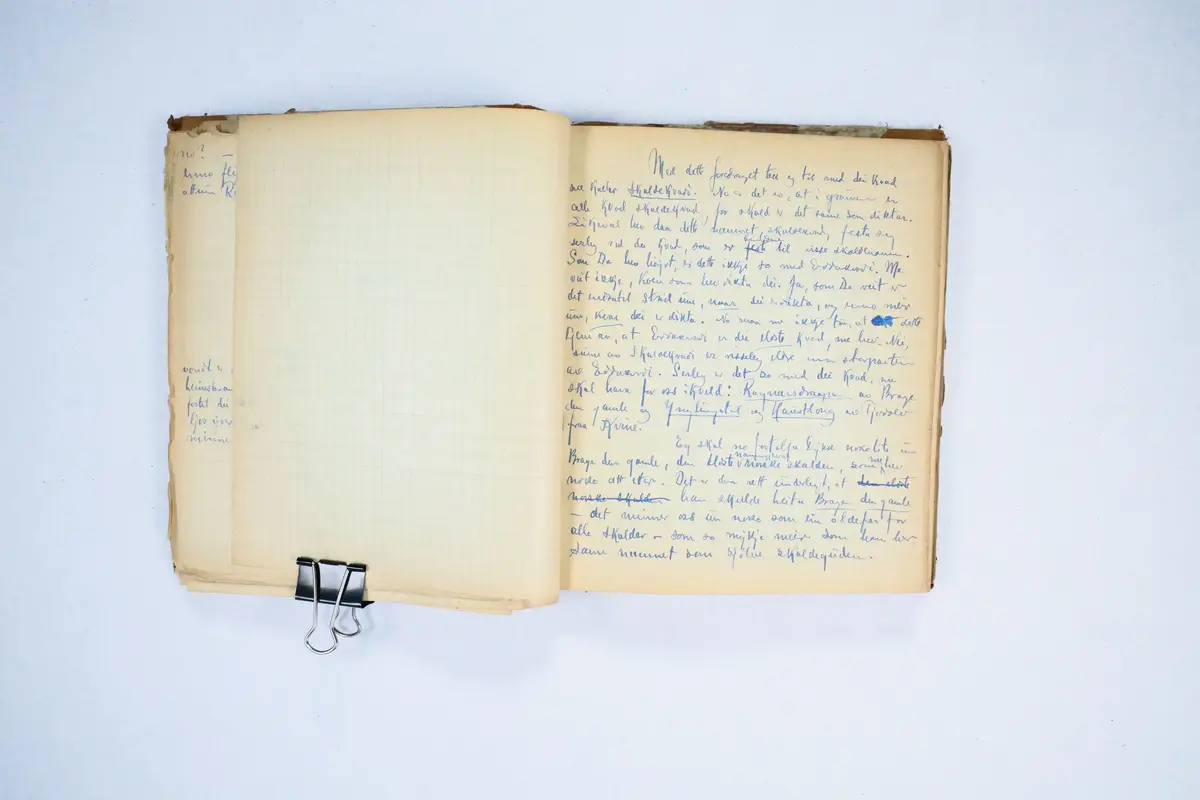 no? —
enno
attum
minne
Med dette foredraget tek eg til med dei kvad
me kallar Skaldekvæði. No er det so, at i grunnen er
alle kvad skaldekvad, for skald er det same som diktar.
Likevel hev daa dette namnet, skaldekvad, festa seg
serleg ved dei kvad, som er til visse skaldenamn.
Som De hev høyrt, er dette ikkje so med Eddakvæði. Me
veit ikkje, kven som hev dikta dei. Ja, som De veit er
det endaatil strid um, naar dei er dikta, og enno meir
um, kvar dei er dikta. No maa me ikkje tru, at dette
gjer av, at Eddakvæði er dei eldste kvad, me hev. Nei,
sume av Skaldekvæði er visseleg eldre enn storparten
av Eddakvæði. Serleg er det so med dei kvad, me
skal hava for oss ikveld: Ragnarsdraapa av Brage
den gamle og Ynglingatal og Haustlong av Tjodolv
fraa Kvine.
Eg skal no fortelja Dykk noko lite um
Brage den gamle, den eldste norske skalden, som me hev
noko att etter. Det er daa rett underlegt, at den eldste
norske skalden han skulde heita Brage den gamle
— det minner oss um noko som ein aldefar for
alle skaldar — som so mykje meir som han ber
same namnet som sjølve skaldeguden.